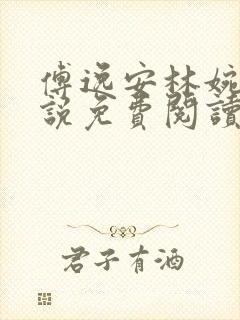 傅逸安林婉
說免費閱讀
君子有酒